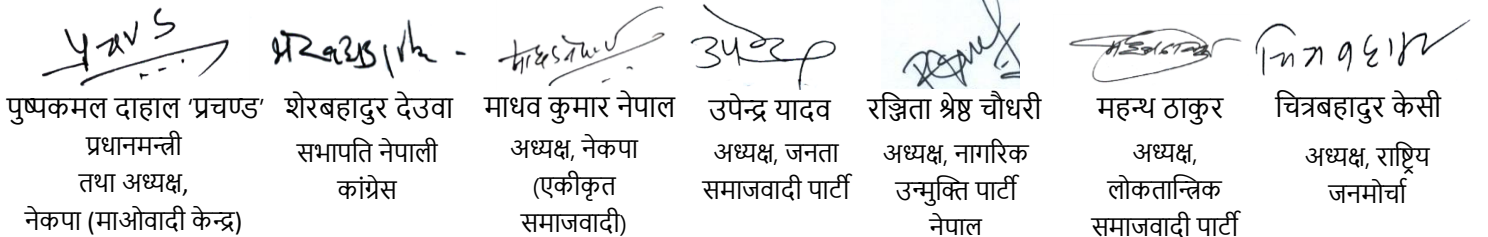 पुष्पकमल दाहाल ‘प्रचण्ड’
प्रधानमन्त्री
तथा अध्यक्ष,
नेकपा (माओवादी केन्द्र)
शेरबहादुर देउवा
सभापति नेपाली
कांग्रेस
माधव कुमार नेपाल
अध्यक्ष, नेकपा
(एकीकृत
समाजवादी)
उपेन्द्र
उपेन्द्र यादव
अध्यक्ष, जनता
समाजवादी पार्टी
रञ्जिता श्रेष्ठ चौधरी
अध्यक्ष, नागरिक
उन्मुक्ति पार्टी
नेपाल
महन्थ ठाकुर
अध्यक्ष,
लोकतान्त्रिक
समाजवादी पार्टी
चित्रबहादुर केसी
अध्यक्ष, राष्ट्रिय
जनमोर्चा